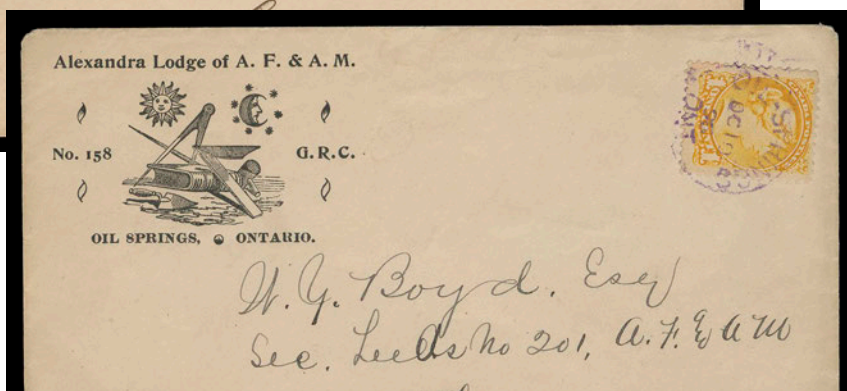 Alexandra Lodge of A. F. & A. M.
No. 158 G.R.C.
OIL SPRINGS, ONTARIO.
OIL SPRINGS
ONT
OC 1
W. Y. Boyd. Esq
Sec. Leeds No 201, A. F. & A M